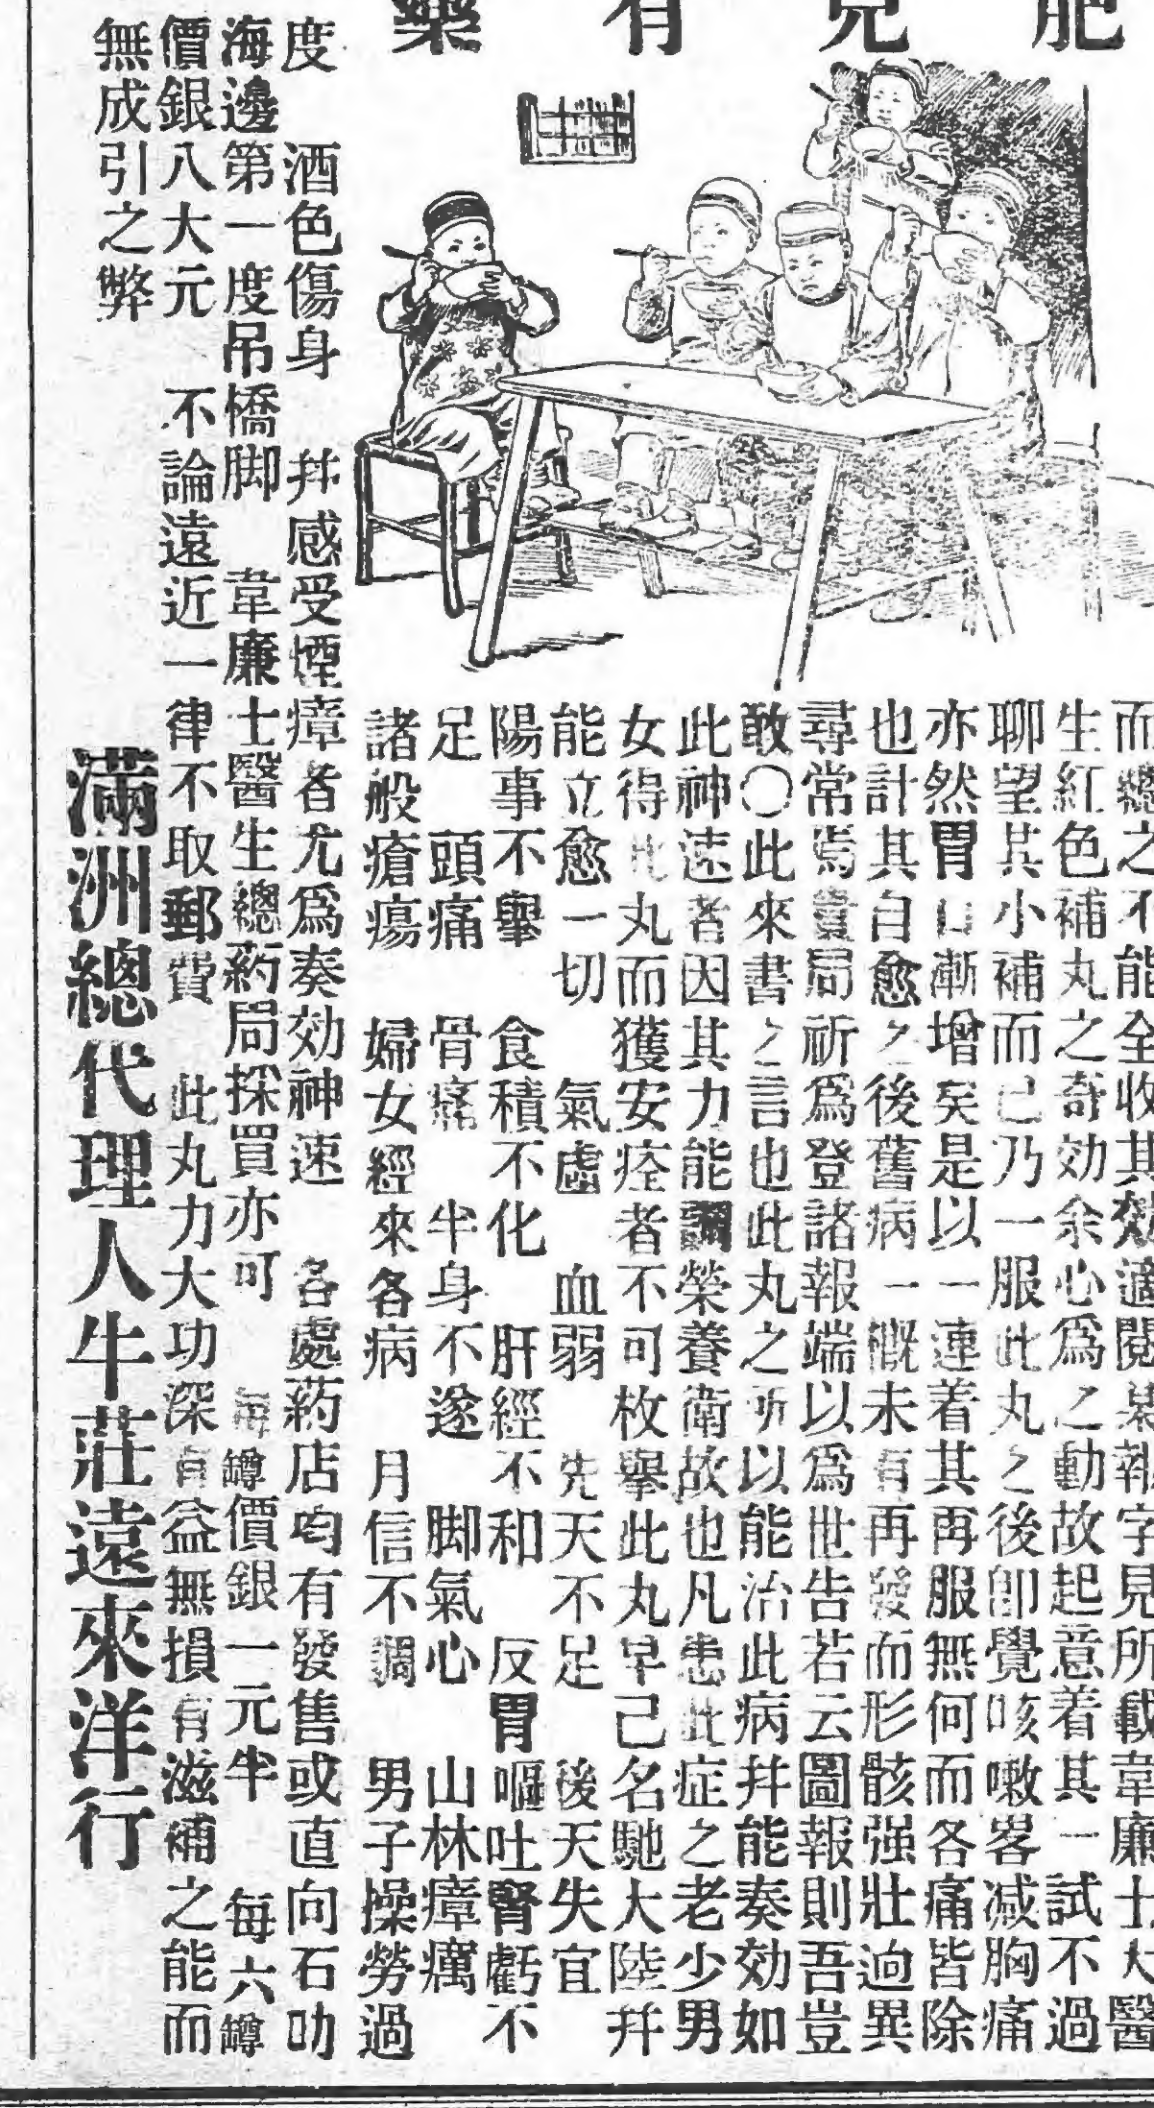 肥兒有藥
而總之不能全收其效適閱某報字見所載韋廉士大醫
生紅色補丸之奇効余心爲之動故起意着其一試不過
聊望其小補而已乃一服此丸之後卽覺咳嗽畧減胸痛
亦然胃口漸增矣是以一連着其再服無何而各痛皆除
也計其自愈之後舊病一概未有再發而形骸强壯逈異
尋常焉貴局祈爲登諸報端以爲世告若云圖報則吾豈
敢〇此來書之言也此丸之所以能治此病幷能奏効如
此神速者因其力能調榮養衛故也凡患此症之老少男
女得此丸而獲安痊者不可枚舉此丸早已名馳大陸幷
能立愈一切 氣虛 血弱 先天不足 後天失宜
陽事不舉 食積不化 肝經不和 反胃嘔吐腎虧不
足 頭痛 骨痛 半身不遂 脚氣心 山林瘴癘
諸般瘡瘍 婦女經來各病 月信不調 男子操勞過
度 酒色傷身 幷感受煙瘴者尤爲奏効神速 各處葯店均有發售或直向石叻
海邊第一度吊橋脚 韋廉士醫生總葯局採買亦可 每罇價銀一元半 每六罇
價銀八大元 不論遠近一律不取郵費 此丸力大功深有益無損有滋補之能而
無成引之弊
滿洲總代理人牛莊遠來洋行